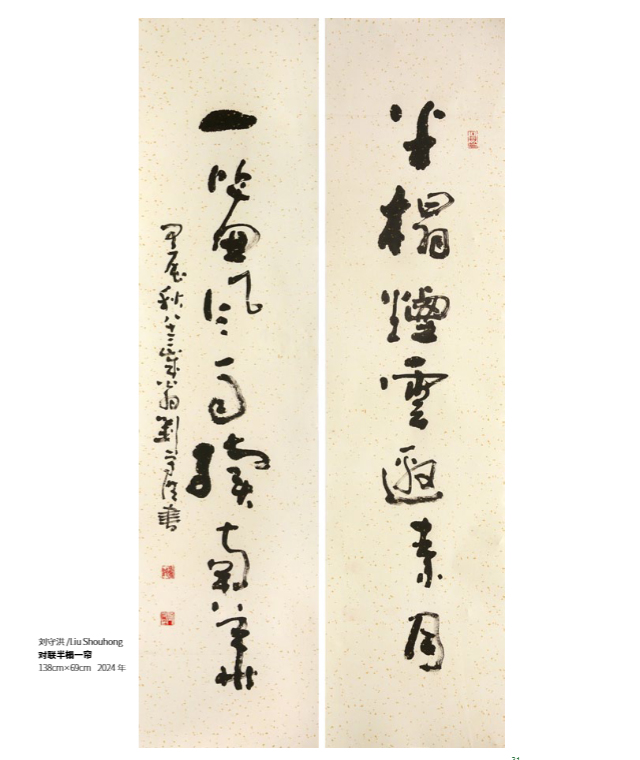 半榻煙雲邀素月
一簾風雨讀南華
甲辰秋八十三歲翁劉守洪書
刘守洪 /Liu Shouhong
对联半榻一帘
138cm×69cm 2024 年